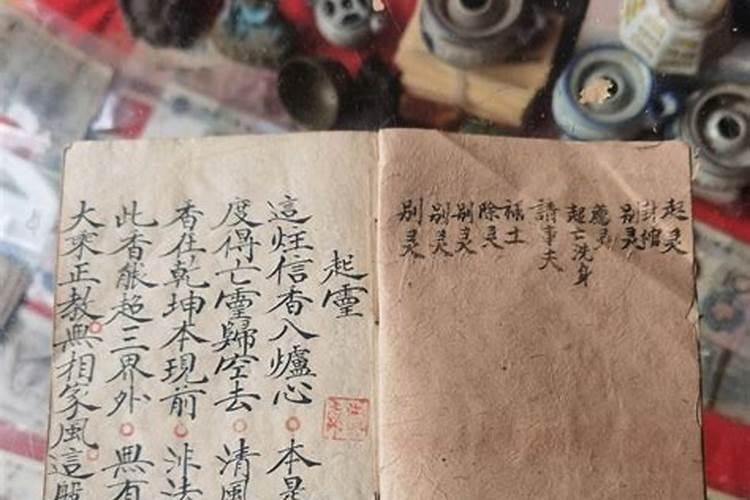 起灵
封棺
別灵
薦灵
起亡洗身
請事夫
土
除灵
别灵
别灵
别灵
起靈
這炷信香入爐心 本是
度得亡靈歸空去 清風
香在乾坤本現前 法
此香能超三界外 無有
大乘正教無相家風這般